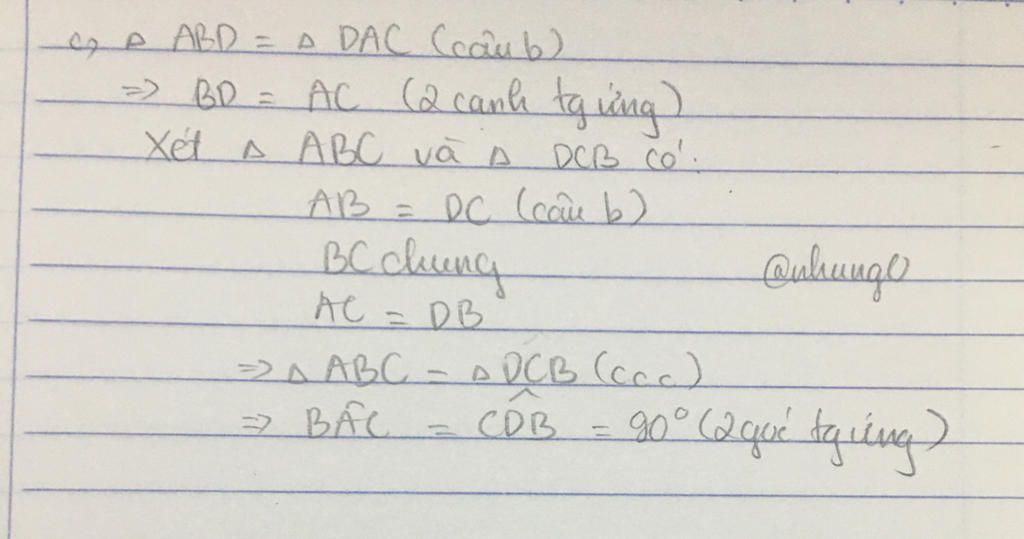 c, Δ ABD = Δ DAC (câu b)
=> BD = AC (2 cạnh tg ứng)
Xét Δ ABC và Δ DCB có:
AB = DC (câu b)
BC chung
@nhung
AC = DB
=> Δ ABC = Δ DCB (ccc)
=> BÂC = CD̂B = 90° (2 góc tg ứng)